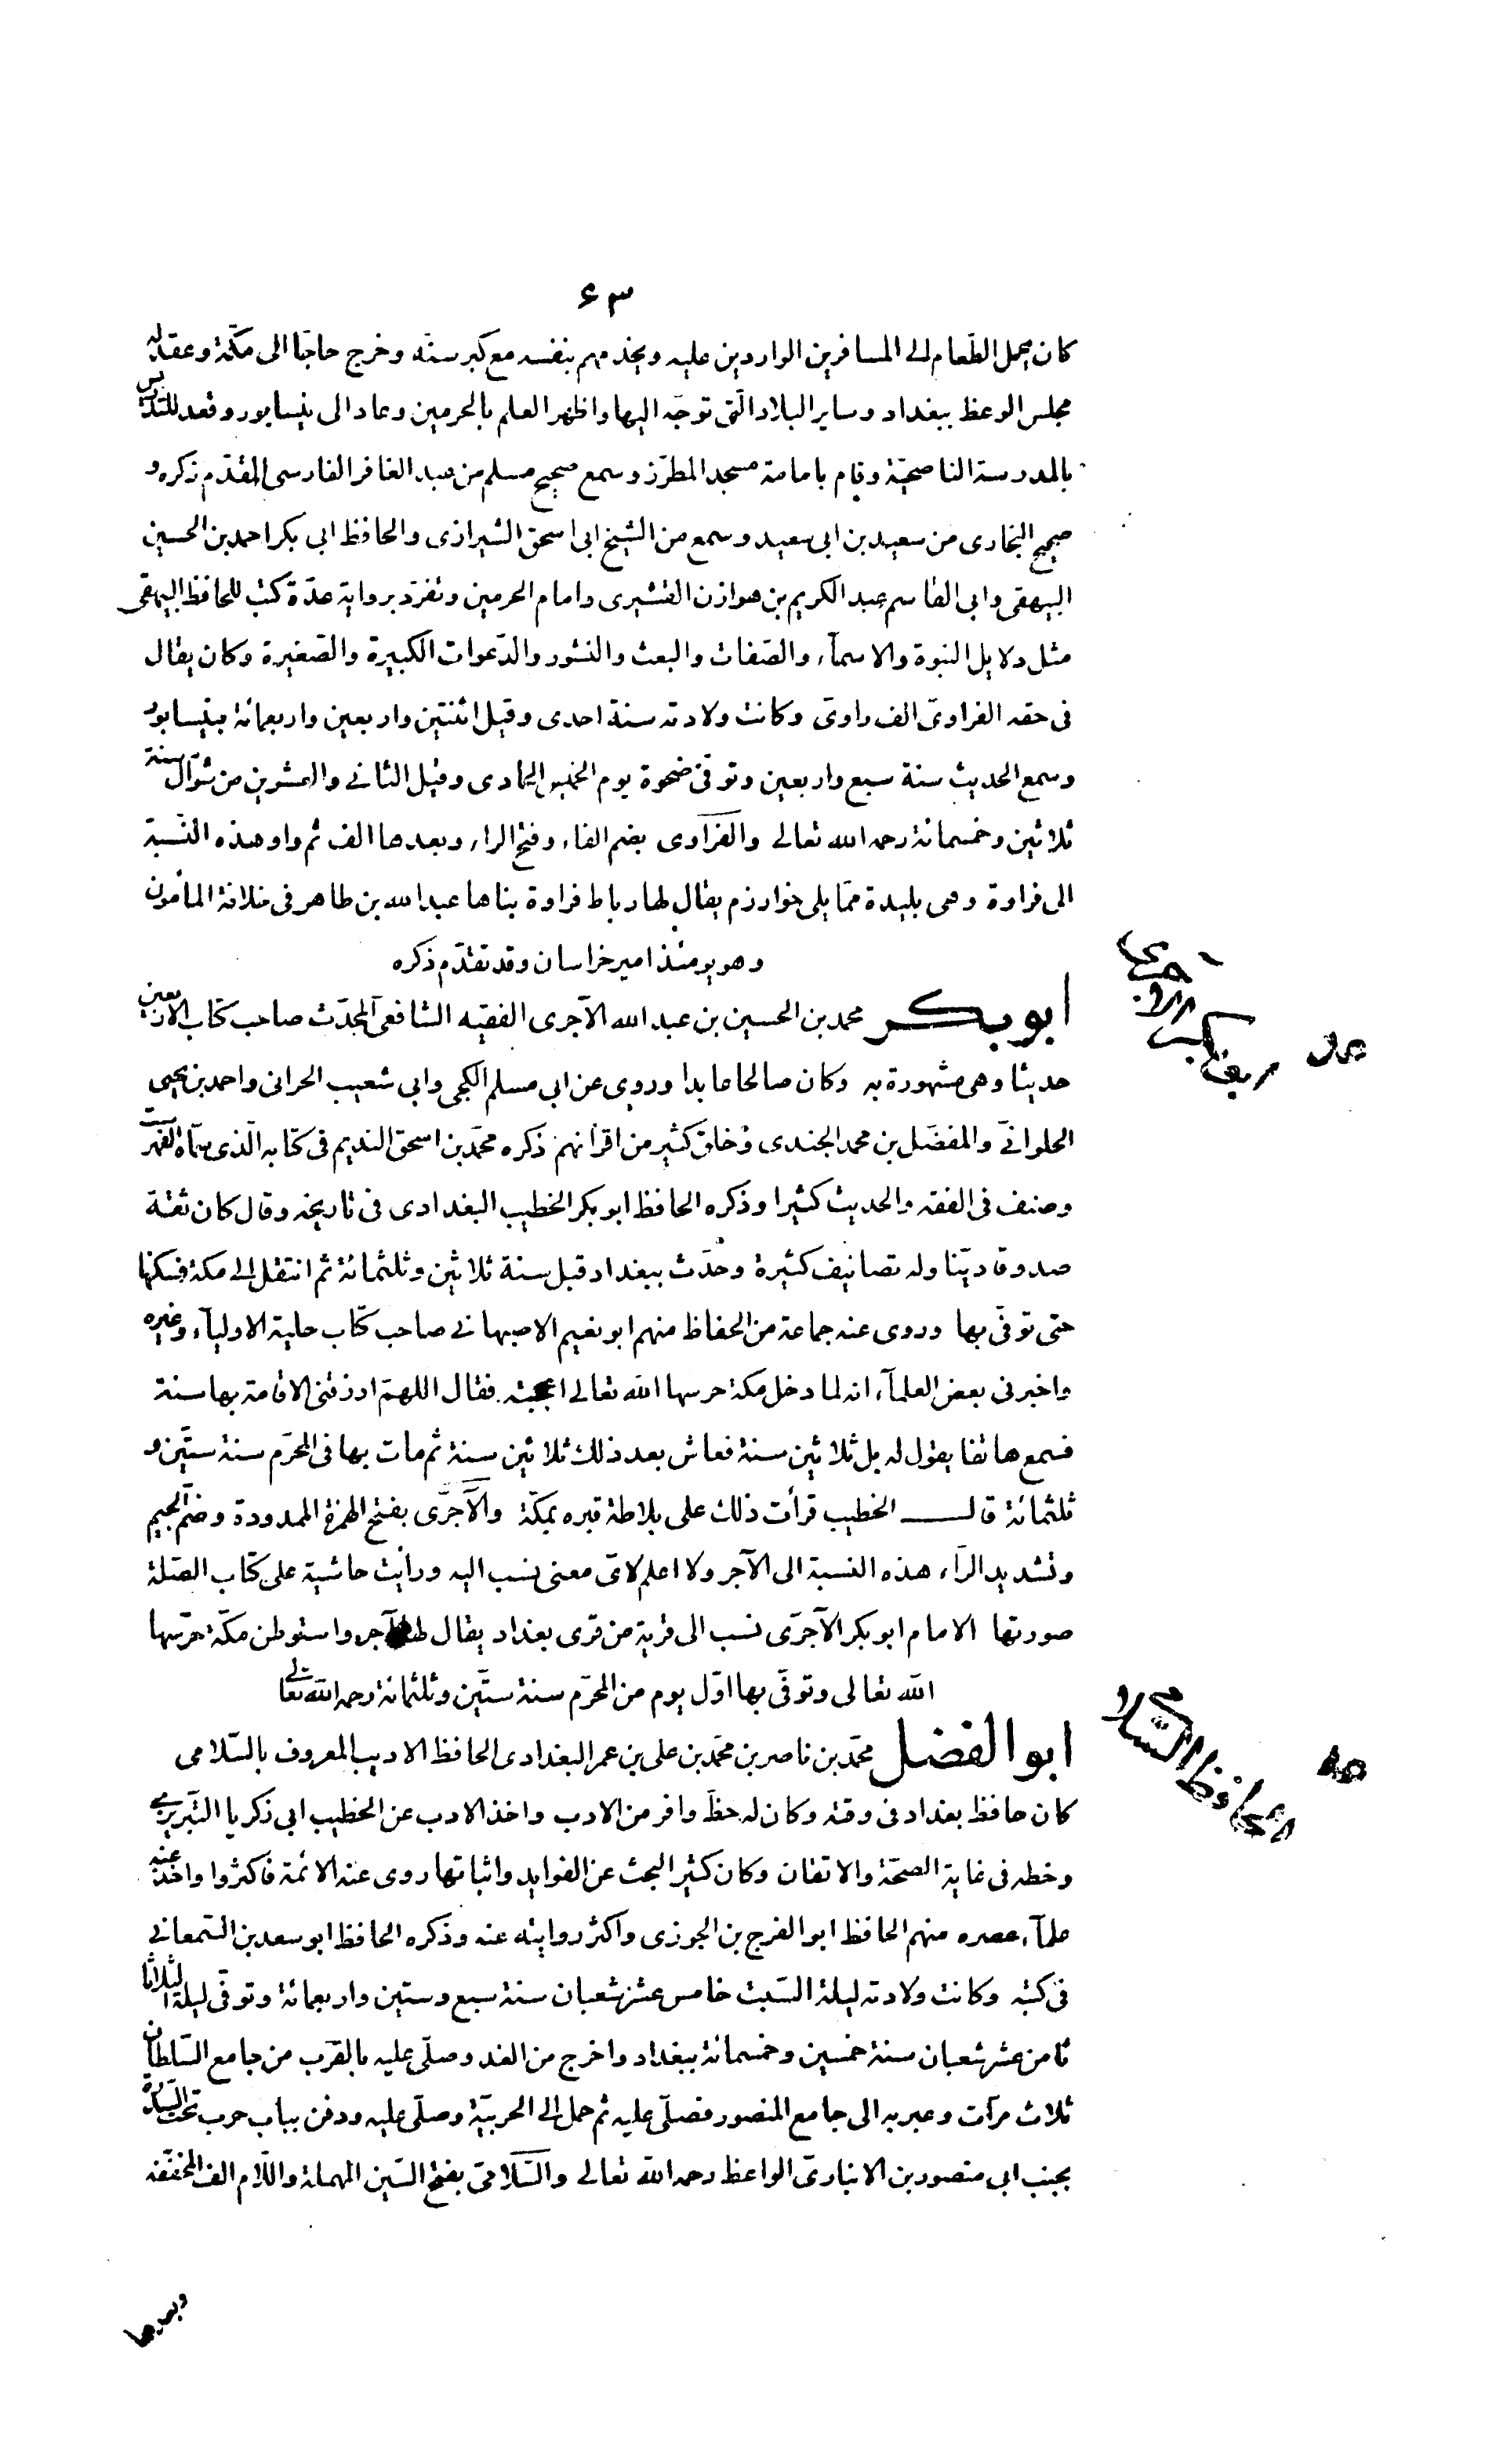 ٤٣
كان يحمل الطّعام الى المسافرين الواردين عليه ويخدمهم بنفسه مع كبر سنّه وخرج حاجّا الى مكّة وعقد له
مجلس الوعظ ببغداد وساير البلاد الّتى توجّه اليها واظهر العلم بالحرمين وعاد الى نيسابور وقعد للتدريس
بالمدرسة الناصحيّة وقام بامامة مسجد المطرّز وسمع صحيح مسلم من عبد الغافر الفارسى المقدّم ذكره و
صحيح البخارى من سعيد بن ابى سعيد وسمع من الشيخ ابى اسحق الشيرازى والحافظ ابى بكر احمد بن الحسين
البيهقى وابى القاسم عبد الكريم بن هوازن القشيرى وامام الحرمين وتفرّد برواية عدّة كتب للحافظ البيهقى
مثل دلايل النبوة والاسمآء والصّفات والبعث والنشور والدّعوات الكبيرة والصّغيرة وكان يقال
فى حقه الفراوىّ الف راوىّ وكانت ولادته سنة احدى وقيل اثنتين واربعين واربعمائة بنيسابور
وسمع الحديث سنة سبع واربعين وتوفّى ضحوة يوم الخميس الحادى وقيل الثانى والعشرين من شوّال سنة
ثلاثين وخمسمائة رحمه الله تعالى والفراوى بضم الفاء وفتح الراء وبعدها الف ثم واو هذه النّسبة
الى فراوة وهى بليدة ممّا يلى خوارزم يقال لها رباط فراوة بناها عبد الله بن طاهر فى خلافة المأمون
وهو يومئذ امير خراسان وقد تقدّم ذكره
ابو بكر محمد بن الحسين بن عبد الله الآجرى الفقيه الشافعى المحدّث صاحب كتاب الاربعين
حديثا وهى مشهورة به وكان صالحا عابدا وروى عن ابى مسلم الكجى وابى شعيب الحرانى واحمد بن يحيى
الحلوانى والمفضّل بن محمد الجندى وخلق كثير من اقرانهم ذكره محمّد بن اسحق النديم فى كتابه الّذى سمّاه الفهرست
وصنف فى الفقه والحديث كثيرا وذكره الحافظ ابو بكر الخطيب البغدادى فى تاريخه وقال كان ثقة
صدوقا ديّنا وله تصانيف كثيرة وحدّث ببغداد قبل سنة ثلاثين وثلثمائة ثم انتقل الى مكة فسكنها
حتى توفّى بها وروى عنه جماعة من الحفاظ منهم ابو نعيم الاصبهانى صاحب كتاب حلية الاوليآء وغيره
واخبرنى بعض العلمآء انه لما دخل مكة حرسها الله تعالى اعجبته فقال اللهمّ ارزقنى الاقامة بها سنة
فسمع هاتفا يقول له بل ثلاثين سنة فعاش بعد ذلك ثلاثين سنة ثم مات بها فى المحرّم سنة ستّين و
ثلثمائة قال الخطيب قرأت ذلك على بلاطة قبره بمكّة والآجرّى بفتح الهمزة الممدودة وضمّ الجيم
وتشديد الرآء هذه النسبة الى الآجر ولا اعلم لاىّ معنى نسب اليه ورأيت حاشية على كتاب الصّلة
صورتها الامام ابو بكر الآجرّى نسب الى قرية من قرى بغداد يقال لها الآجر واستوطن مكّة حرّسها
الله تعالى وتوفّى بها اوّل يوم من المحرّم سنة ستّين وثلثمائة رحمه الله تعالى
ابو الفضل محمّد بن ناصر بن محمّد بن على بن عمر البغدادى الحافظ الاديب المعروف بالسّلامى
كان حافظ بغداد فى وقته وكان له حظّ وافر من الادب واخذ الادب عن الخطيب ابى زكريا التّبريزى
وخطه فى غاية الصحّة والاتقان وكان كثير البحث عن الفوايد واثباتها روى عنه الائمّة فاكثروا واخذ عنه
علمآء عصره منهم الحافظ ابو الفرج بن الجوزى واكثر روايته عنه وذكره الحافظ ابو سعد بن السّمعانى
فى كتبه وكانت ولادته ليلة السّبت خامس عشر شعبان سنة سبع وستين واربعمائة وتوفى ليلة الثلاثا
ثامن عشر شعبان سنة خمسين وخمسمائة ببغداد واخرج من الغد وصلّى عليه بالقرب من جامع السّلطان
ثلاث مرّات وعبر به الى جامع المنصور فصلّى عليه ثم حمل الى الحربيّة وصلّى عليه ودفن بباب حرب تحت السّدرة
بجنب ابى منصور بن الانبارىّ الواعظ رحمه الله تعالى والسّلامىّ بفتح السّين المهملة واللّام الف المخفّفة
ابو بكر الاجرى
الحافظ السّلامى
وبعدها